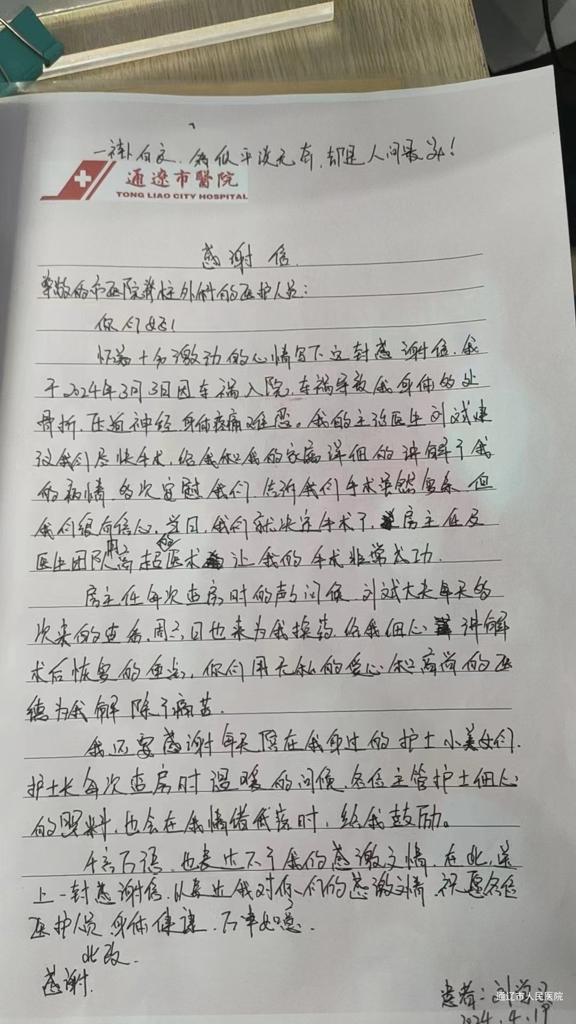 一袭白衣，看似平淡无奇，却是人间最美！
通遼市醫院
TONG LIAO CITY HOSPITAL
感谢信
尊敬的市医院脊柱外科的医护人员：
你们好！
怀着十分激动的心情写下这封感谢信，我
于2024年3月3日因车祸入院，车祸导致我身体多处
骨折，压迫神经，身体疼痛难忍。我的主治医生刘斌建
议我们尽快手术，给我和我的家属详细的讲解了我
的病情，多次安慰我们，告诉我们手术虽然复杂，但
我们很有信心，当日，我们就决定手术了，房主任及
医生团队用高超的医术让我的手术非常成功。
房主任每次查房时的声声问候，刘斌大夫每天多
次来的查看，周六日也来为我换药，给我细心讲解
术后恢复的重点，你们用无私的爱心和高尚的医
德为我解除了病苦。
我还要感谢每天陪在我身边的护士小美女们，
护士长每次查房时温暖的问候，各位主管护士细心
的照料，也会在我情绪低落时，给我鼓励。
千言万语，也表达不了我的感激之情，在此，送
上一封感谢信，以表达我对你们的感激之情，祝愿各位
医护人员身体健康，万事如意。
此致
感谢.
患者：刘
2024.4.19
通辽市人民医院